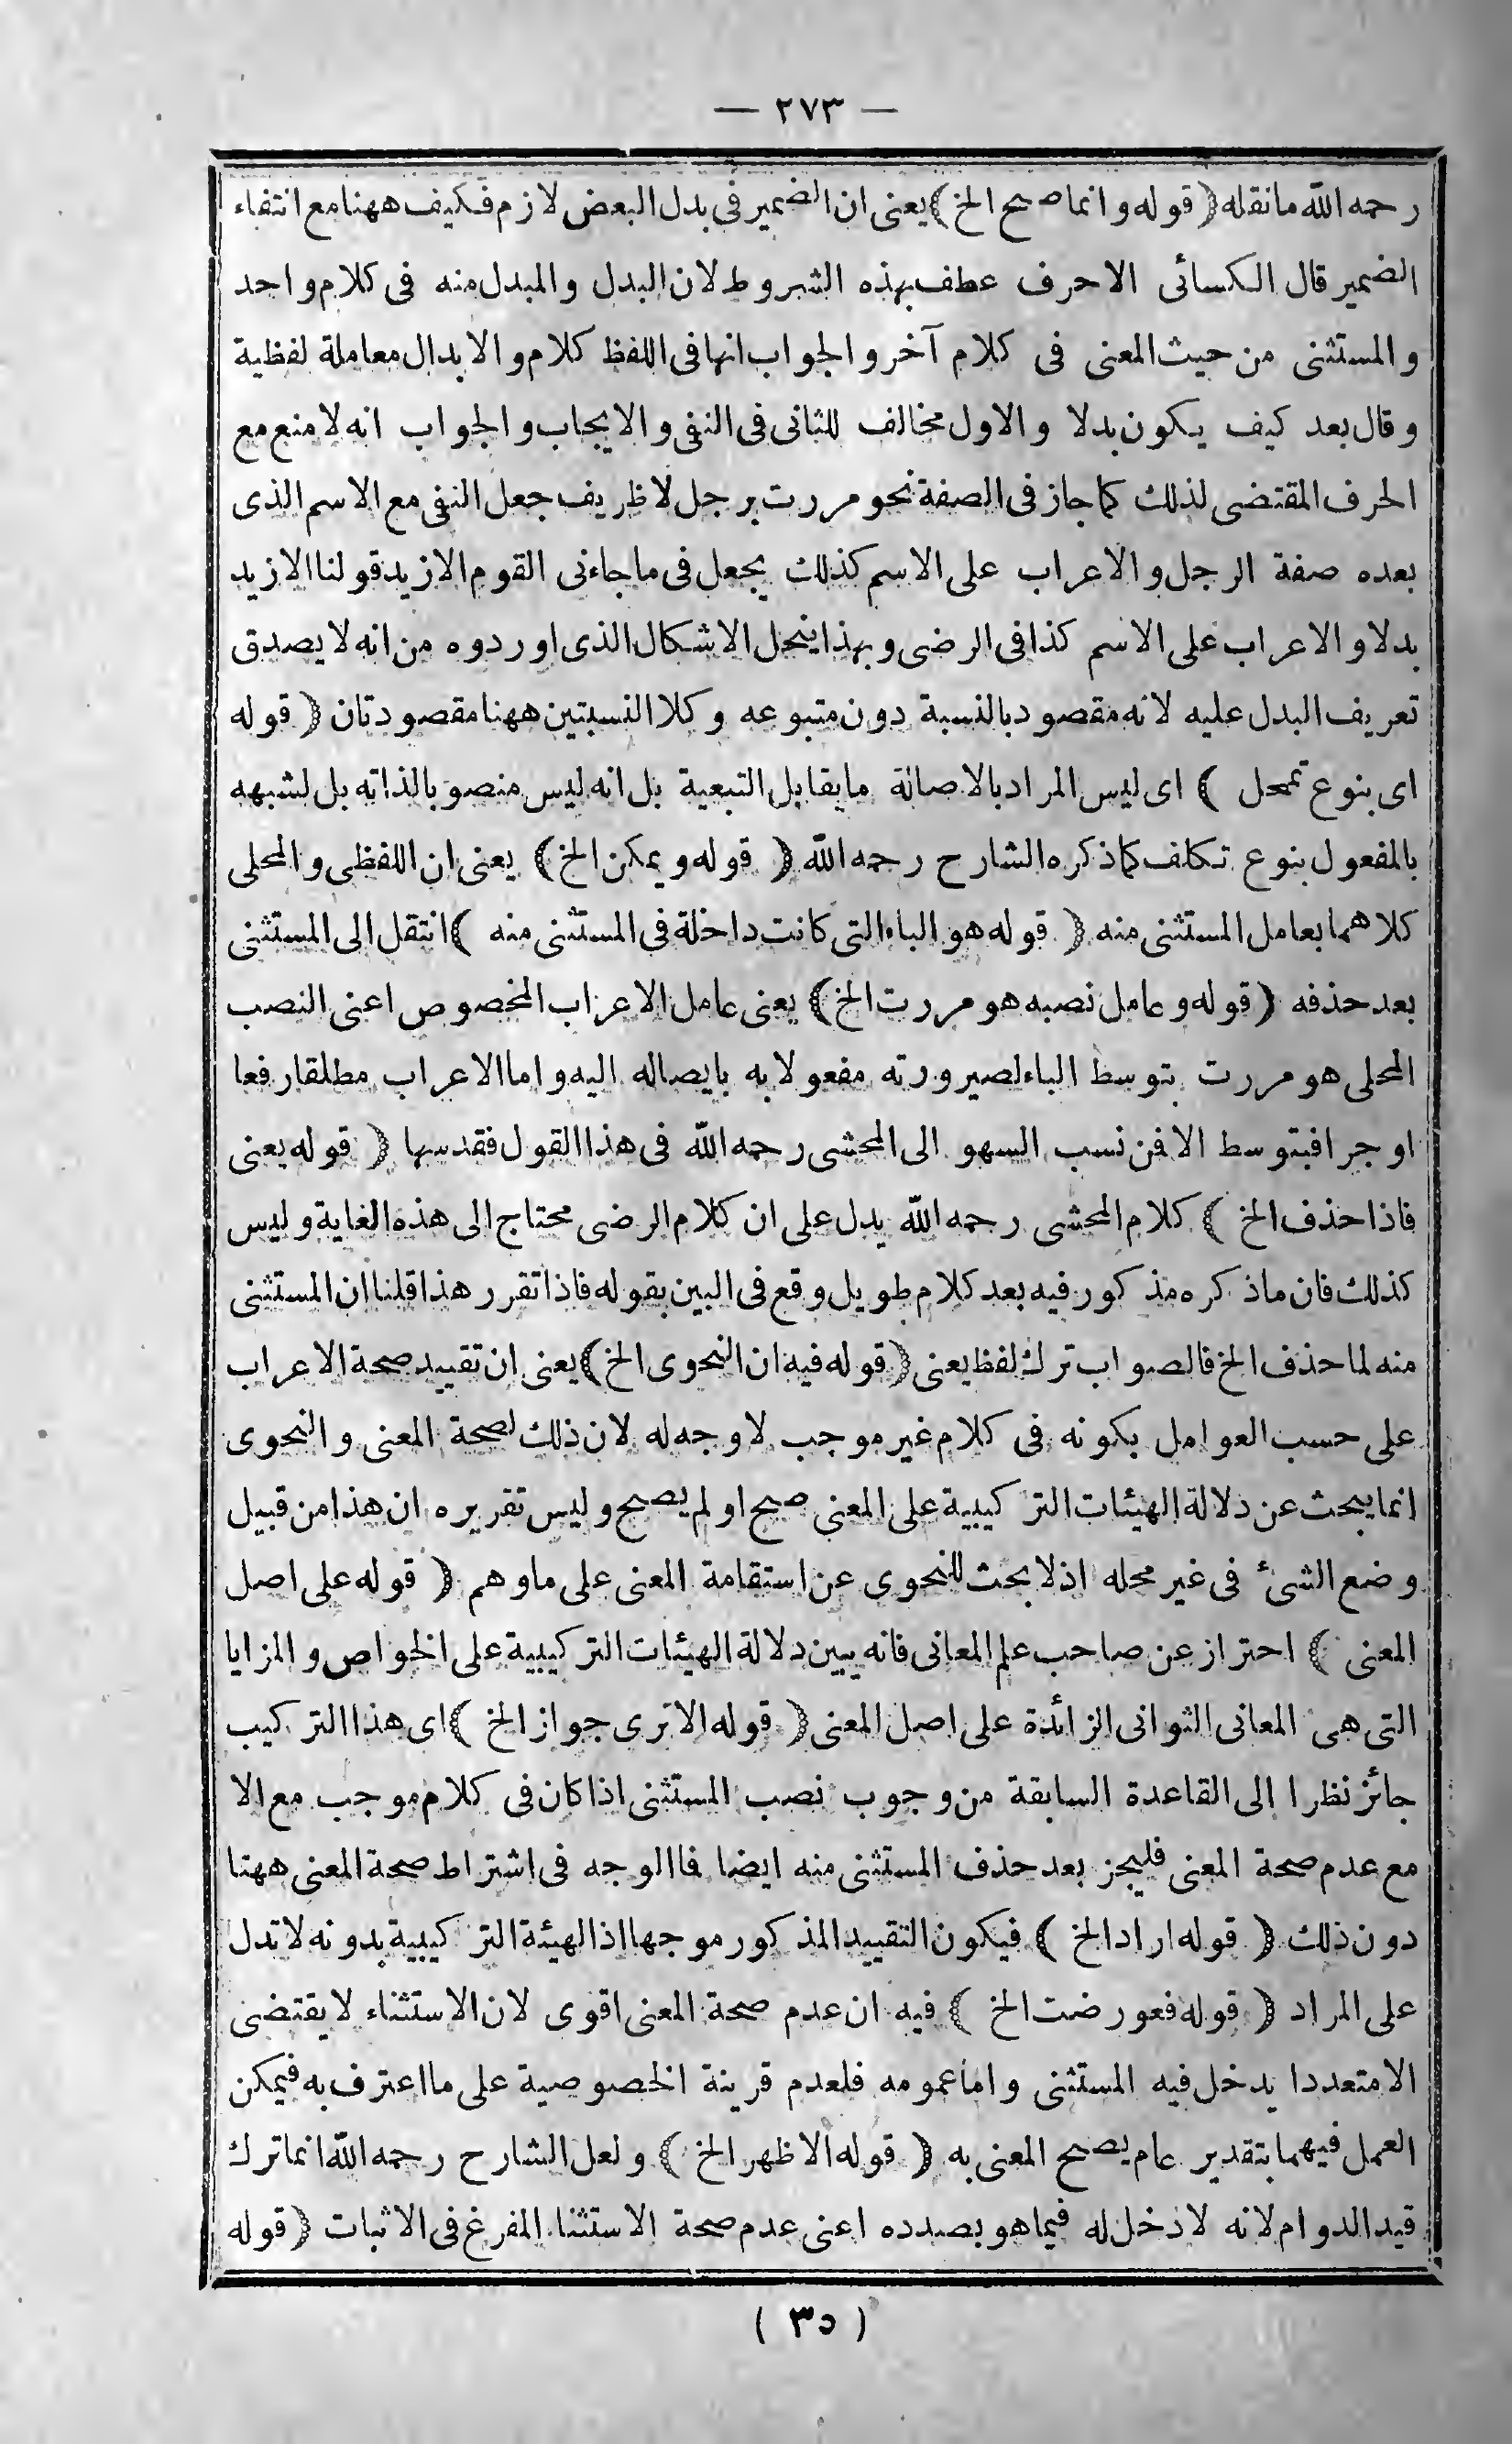 — ٢٧٣ —
رحمه الله ما نقله ﴿ قوله وانما صح الخ ﴾ يعنى ان الضمير فى بدل البعض لازم فكيف ههنا مع انتفاء
الضمير قال الكسائى الا حرف عطف بهذه الشروط لان البدل والمبدل منه فى كلام واحد
والمستثنى من حيث المعنى فى كلام آخر والجواب انها فى اللفظ كلام والابدال معاملة لفظية
وقال بعد كيف يكون بدلا والاول مخالف للثانى فى النفى والايجاب والجواب انه لا منع مع
الحرف المقتضى لذلك كما جاز فى الصفة نحو مررت برجل لا ظريف جعل النفى مع الاسم الذى
بعده صفة الرجل والاعراب على الاسم كذلك يجعل فى ما جاءنى القوم الا زيد قولنا الا زيد
بدلا والاعراب على الاسم كذا فى الرضى وبهذا ينحل الاشكال الذى اوردوه من انه لا يصدق
تعريف البدل عليه لانه مقصود بالنسبة دون متبوعه وكلا النسبتين ههنا مقصودتان ﴿ قوله
اى بنوع تمحل ﴾ اى ليس المراد بالاصالة ما يقابل التبعية بل انه ليس منصوبا لذاته بل لشبهه
بالمفعول بنوع تكلف كما ذكره الشارح رحمه الله ﴿ قوله ويمكن الخ ﴾ يعنى ان اللفظى والمحلى
كلاهما بعامل المستثنى منه ﴿ قوله هو الباء التى كانت داخلة فى المستثنى منه ﴾ انتقل الى المستثنى
بعد حذفه ﴿ قوله وعامل نصبه هو مررت الخ ﴾ يعنى عامل الاعراب المخصوص اعنى النصب
المحلى هو مررت بتوسط الباء لصيرورته مفعولا به بايصاله اليه واما الاعراب مطلقا رفعا
او جرا فبتوسط الا فمن نسب السهو الى المحشى رحمه الله فى هذا القول فقد سها ﴿ قوله يعنى
فاذا حذف الخ ﴾ كلام المحشى رحمه الله يدل على ان كلام الرضى محتاج الى هذه الغاية وليس
كذلك فان ما ذكره مذكور فيه بعد كلام طويل وقع فى البين بقوله فاذا تقرر هذا قلنا ان المستثنى
منه لما حذف الخ فالصواب ترك لفظ يعنى ﴿ قوله فيه ان النحوى الخ ﴾ يعنى ان تقييد صحة الاعراب
على حسب العوامل بكونه فى كلام غير موجب لا وجه له لان ذلك لصحة المعنى والنحوى
انما يبحث عن دلالة الهيئات التركيبية على المعنى صح او لم يصح وليس تقريره ان هذا من قبيل
وضع الشئ فى غير محله اذ لا بحث للنحوى عن استقامة المعنى على ما وهم ﴿ قوله على اصل
المعنى ﴾ احتراز عن صاحب علم المعانى فانه يبين دلالة الهيئات التركيبية على الخواص والمزايا
التى هى المعانى الثوانى الزائدة على اصل المعنى ﴿ قوله الا ترى جواز الخ ﴾ اى هذا التركيب
جائز نظرا الى القاعدة السابقة من وجوب نصب المستثنى اذا كان فى كلام موجب مع الا
مع عدم صحة المعنى فليجز بعد حذف المستثنى منه ايضا فما الوجه فى اشتراط صحة المعنى ههنا
دون ذلك ﴿ قوله اراد الخ ﴾ فيكون التقييد المذكور موجها اذ الهيئة التركيبية بدونه لا تدل
على المراد ﴿ قوله فعورضت الخ ﴾ فيه ان عدم صحة المعنى اقوى لان الاستثناء لا يقتضى
الا متعددا يدخل فيه المستثنى واما عمومه فلعدم قرينة الخصوصية على ما اعترف به فيمكن
العمل فيهما بتقدير عام يصح المعنى به ﴿ قوله الاظهر الخ ﴾ ولعل الشارح رحمه الله انما ترك
قيد الدوام لانه لا دخل له فيما هو بصدده اعنى عدم صحة الاستثناء المفرغ فى الاثبات ﴿ قوله
( ٣٥ )